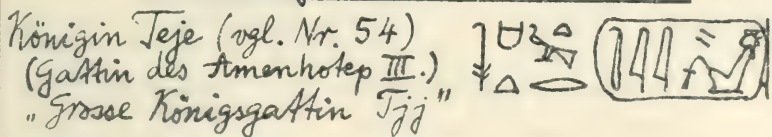 Königin Teje (vgl. Nr. 54)
(Gattin des Amenhotep III.)
"Grosse Königsgattin Tjj"